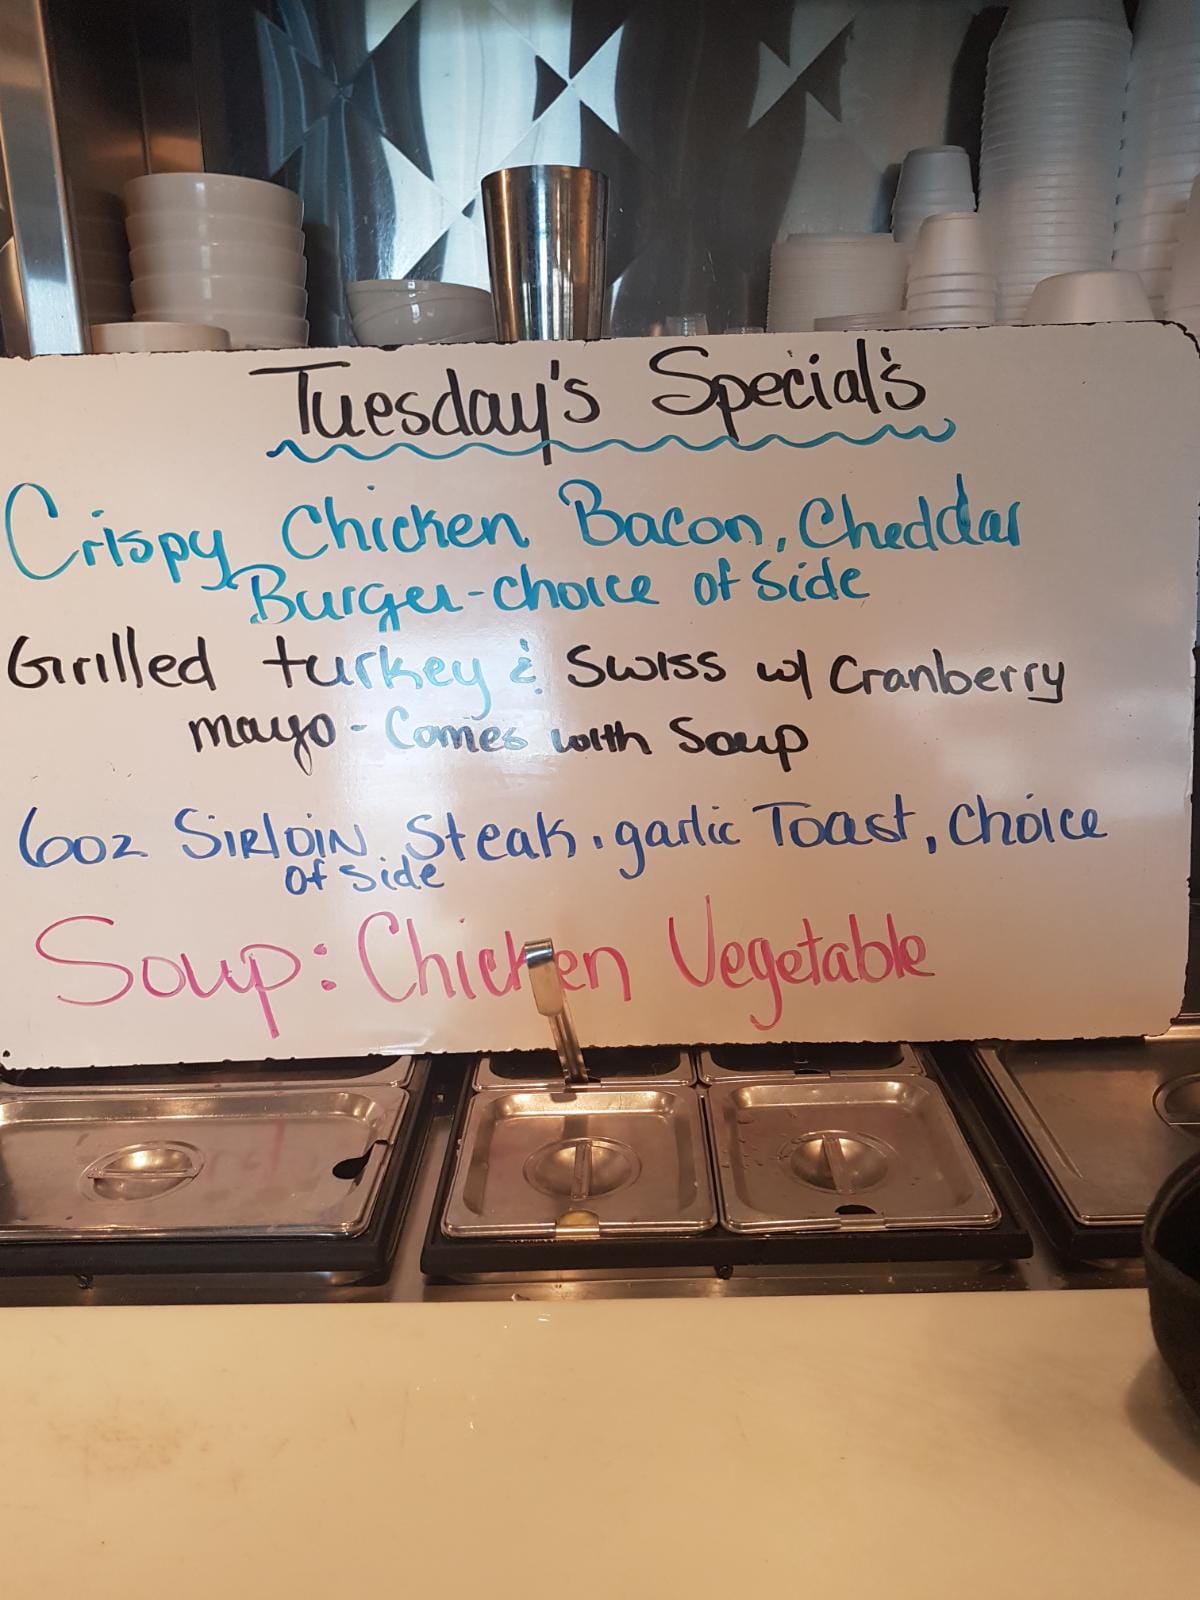 Tuesday's Special's
Crispy Chicken Bacon, Cheddar
Burger-choice of Side
Grilled turkey & Swiss w/ Cranberry
mayo - Comes with Soup
6oz Sirloin Steak, garlic Toast, Choice
of Side
Soup: Chicken Vegetable